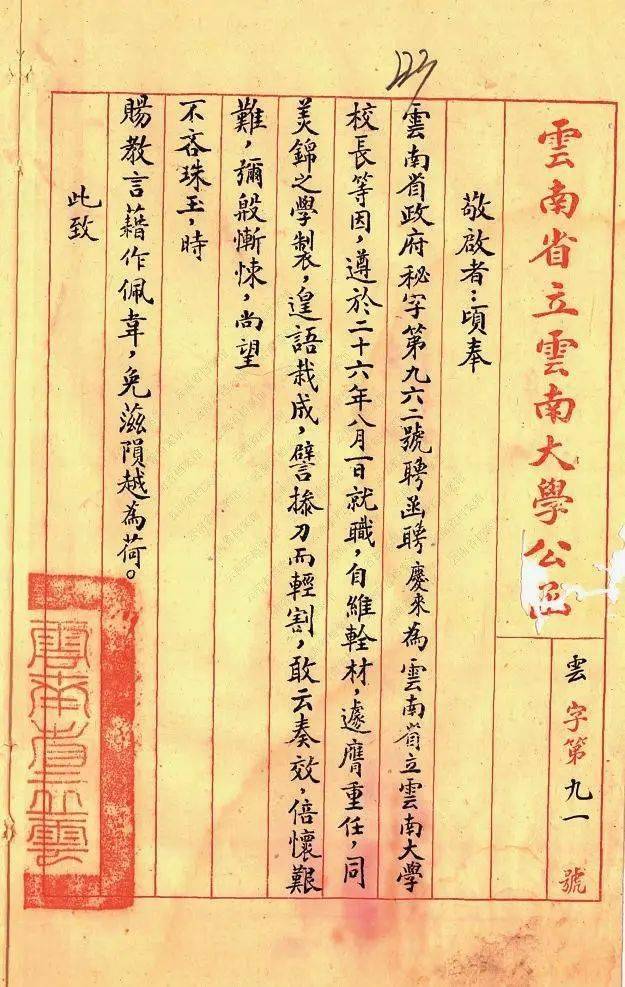 123
雲南省立雲南大學公函
雲字第九一號
敬啟者：頃奉
雲南省政府秘字第九六二號聘函聘慶來為雲南省立雲南大學
校長等因，遵於二十六年八月一日就職，自維輇材，遽膺重任，同
美錦之學製，遑語栽成，譬摻刀而輕割，敢云奏效，倍懷艱
難，彌殷慚悚，尚望
不吝珠玉，時
賜教言藉作佩韋，免滋隕越為荷。
此致
雲南省立雲